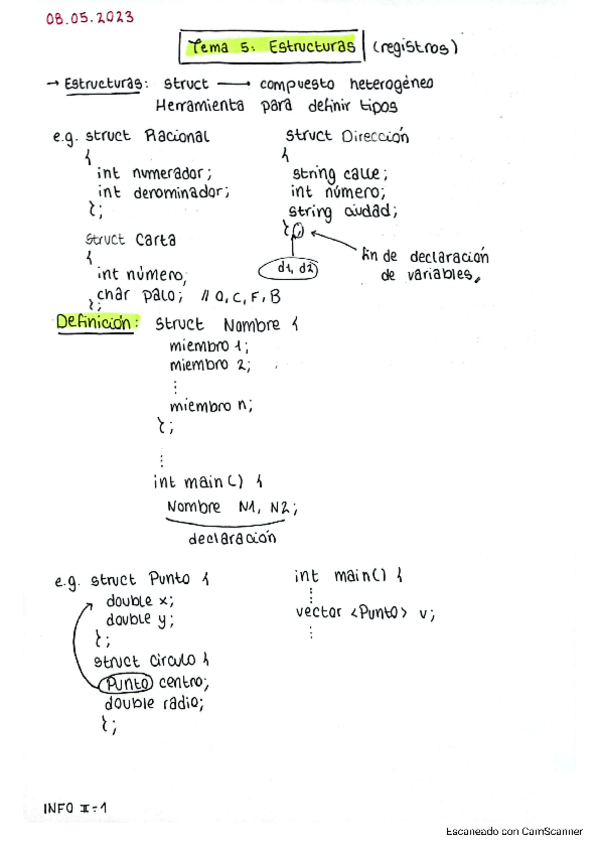 08.05.2023
Tema 5: Estructuras (registros)
→ Estructuras: struct → compuesto heterogéneo
Herramienta para definir tipos
e.g. struct Racional
{
int numerador;
int denominador;
};
struct Dirección
{
string calle;
int número;
string ciudad;
};
d1, d2
fin de declaración
de variables,
struct Carta
{
int número;
char palo; // O, C, F, B
};
Definición: struct Nombre {
miembro 1;
miembro 2;
⋮
miembro n;
};
⋮
int main() {
Nombre N1, N2;
declaración
e.g. struct Punto {
double x;
double y;
};
struct círculo {
Punto centro;
double radio;
};
int main() {
⋮
vector <Punto> v;
⋮
INFO II-1
Escaneado con CamScanner